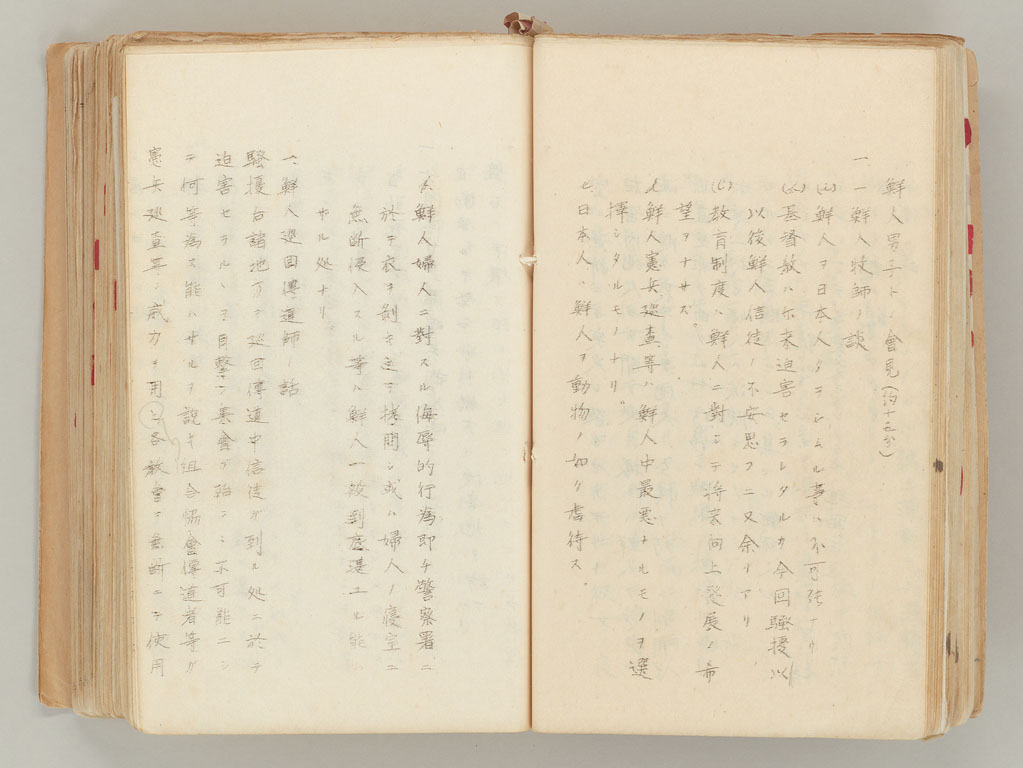 鮮人男三トノ會見(約十五分)
一 一鮮人牧師ノ談
鮮人ヲ日本人タラシムル事ハ不可能ナリ
基督教ハ尓来迫害セラレタルカ今回騒擾以
以後鮮人信徒ノ不安思フニ又余リアリ
教育制度ハ鮮人ニ對シテ将来向上發展ノ希
望ヲナサズ
鮮人憲兵巡査等ハ鮮人中最悪ナルモノヲ選
擇シタルモノナリ。
日本人ハ鮮人ヲ動物ノ如ク虐待ス。
鮮人婦人ニ對スル侮辱的行為即チ警察署ニ
於テ衣ヲ剝キ之ヲ拷問シ或ハ婦人ノ寝室ニ
無断侵入スル等ハ鮮人一般到底湛エル能ハ
サル処ナリ
一、鮮人巡回傳道師ノ話
騒擾各諸地方ヲ巡回傳道中信徒ガ到ル処ニ於テ
迫害セラルヽヲ目撃シ集會ガ殆ンド不可能ニシ
テ何等為ス能ハサルヲ説キ組合協會傳道者等ガ
憲兵巡査等ノ威力ヲ用ヒ各教會ヲ無断ニテ使用